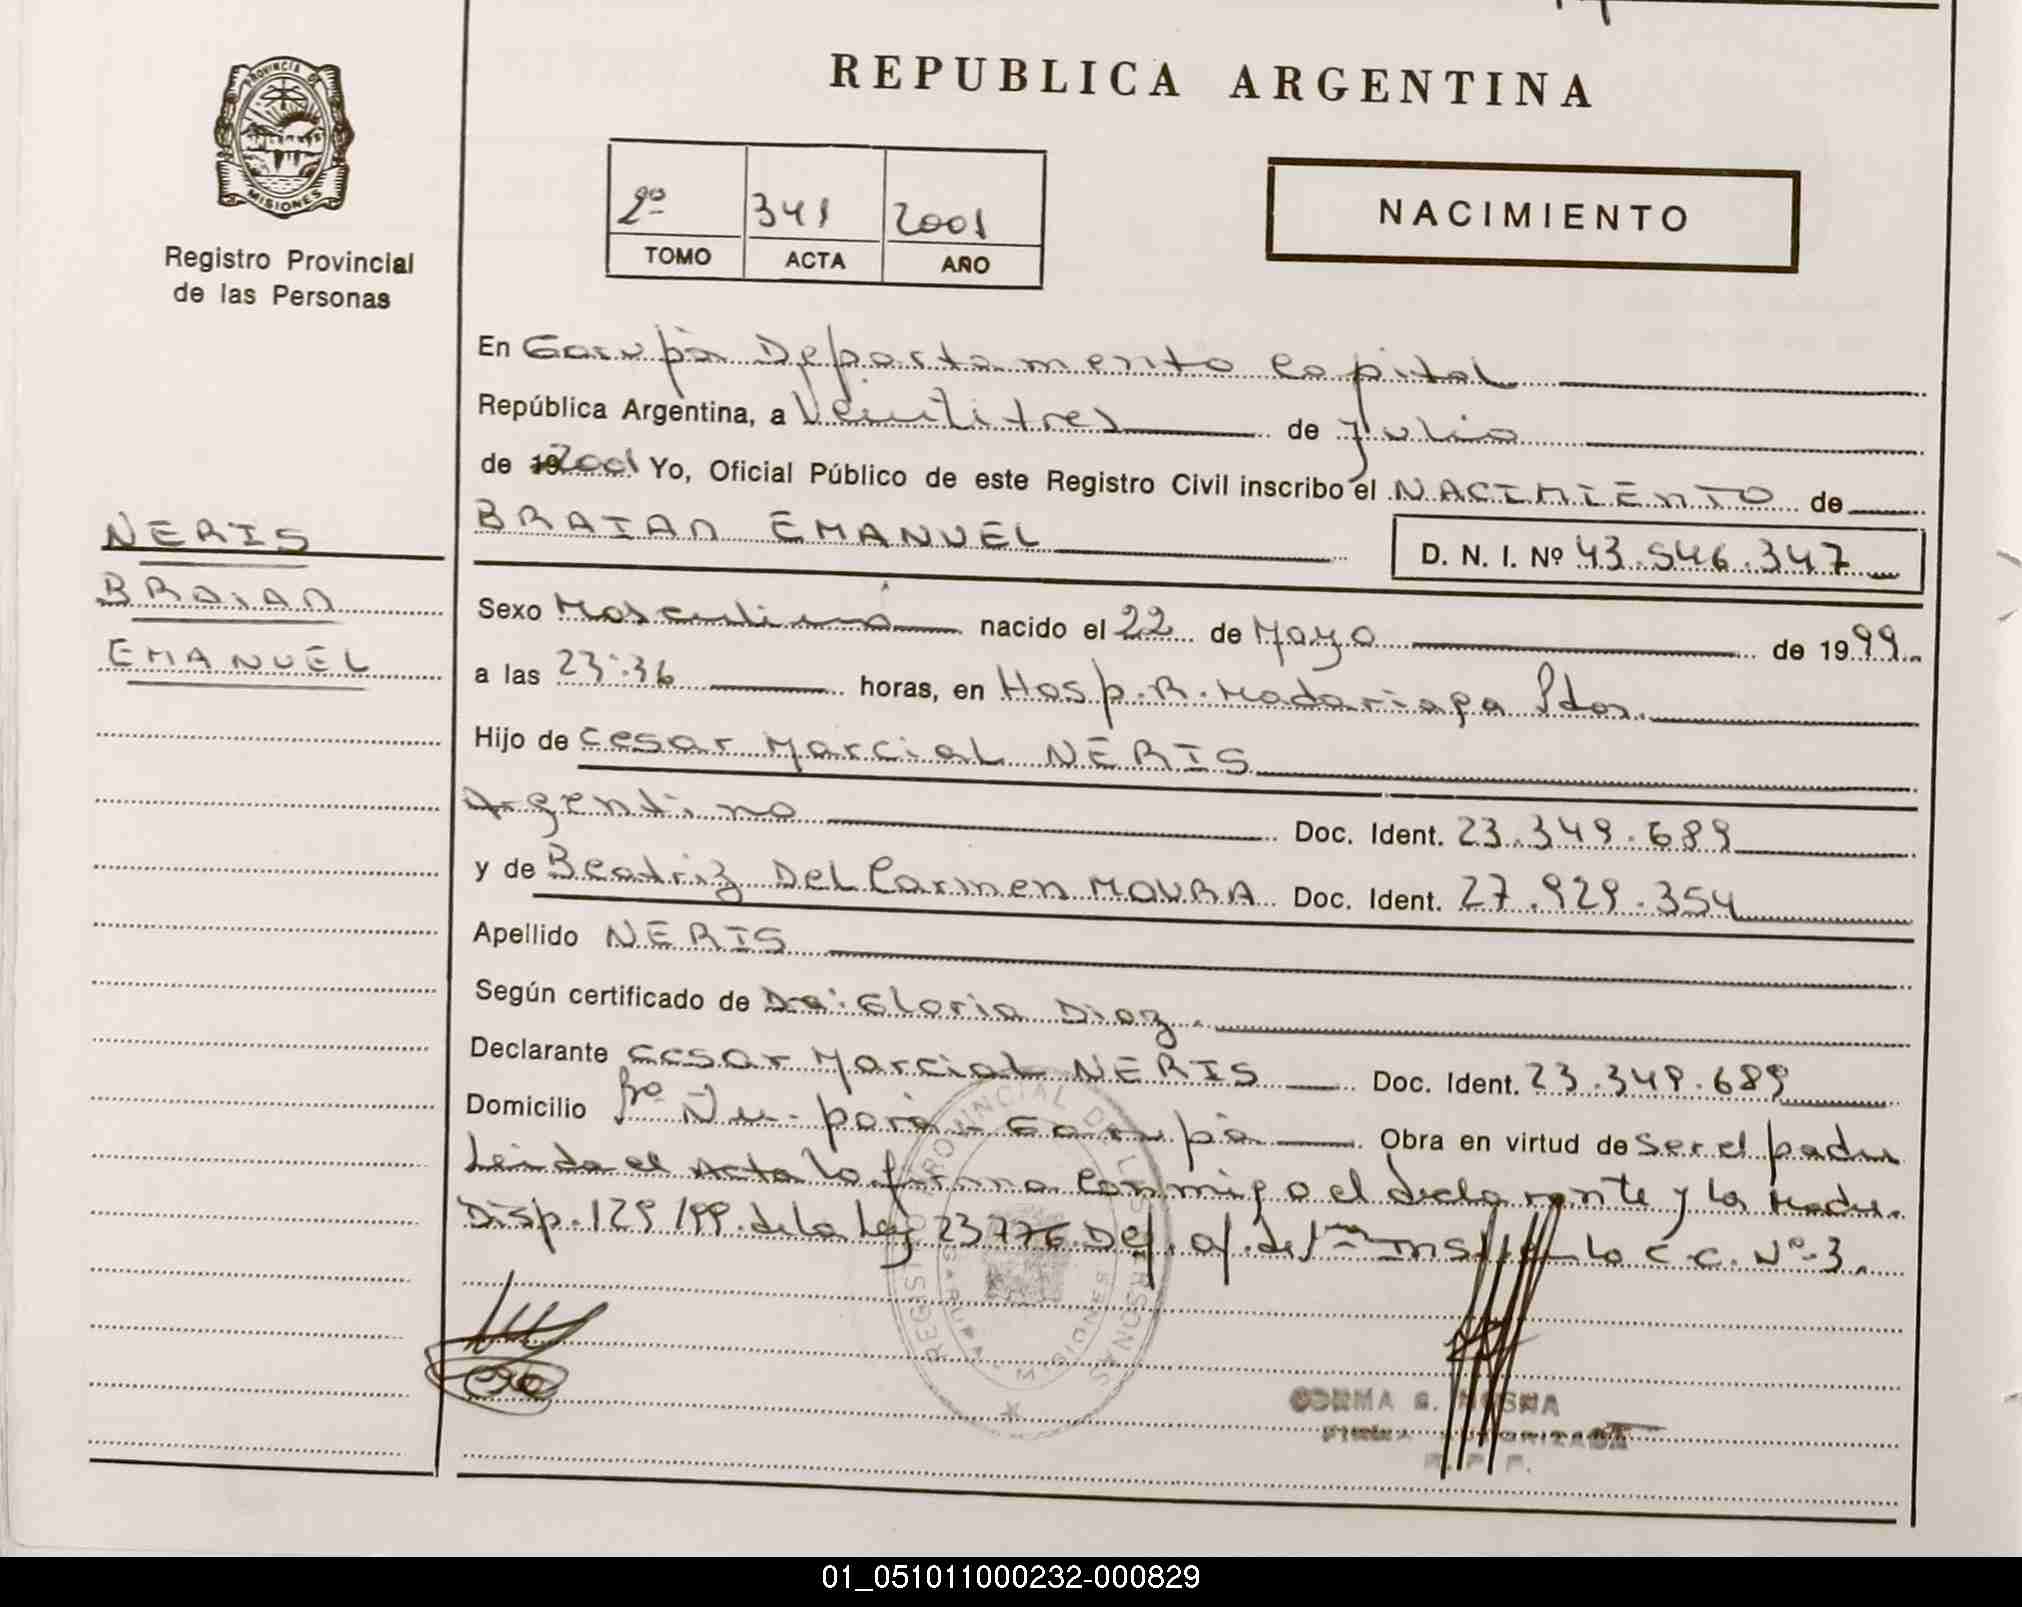 REPUBLICA ARGENTINA
PROVINCIA DE
MISIONES
Registro Provincial
de las Personas
2º 341 2001
TOMO ACTA AÑO
NACIMIENTO
En Garupá Departamento Capital
República Argentina, a Veintitres de Julio
de 19 2001 Yo, Oficial Público de este Registro Civil inscribo el NACIMIENTO de
BRAIAN EMANUEL D. N. I. Nº 43.546.347
NERIS
BRAIAN
EMANUEL
Sexo Masculino nacido el 22 de Mayo de 1999
a las 23:36 horas, en Hosp. R. Madariaga Pdas.
Hijo de Cesar Marcial NERIS
Argentino Doc. Ident. 23.349.689
y de Beatriz Del Carmen MOURA Doc. Ident. 27.929.354
Apellido NERIS
Según certificado de Dra: Gloria Diaz.
Declarante Cesar Marcial NERIS Doc. Ident. 23.349.689
Domicilio Bº Ñu-porá-Garupá Obra en virtud de ser el padre
Leida el Acta lo firma conmigo el declarante y la Madre.
Disp. 129/99. de la Ley 23776. Def. of. de 1ra Inst. en lo C.C. Nº 3.
REGISTRO PROVINCIAL DE LAS PERSONAS
GARUPA - MISIONES
NORMA G.
FIRMA AUTORIZADA
R. P. P.
01_051011000232-000829